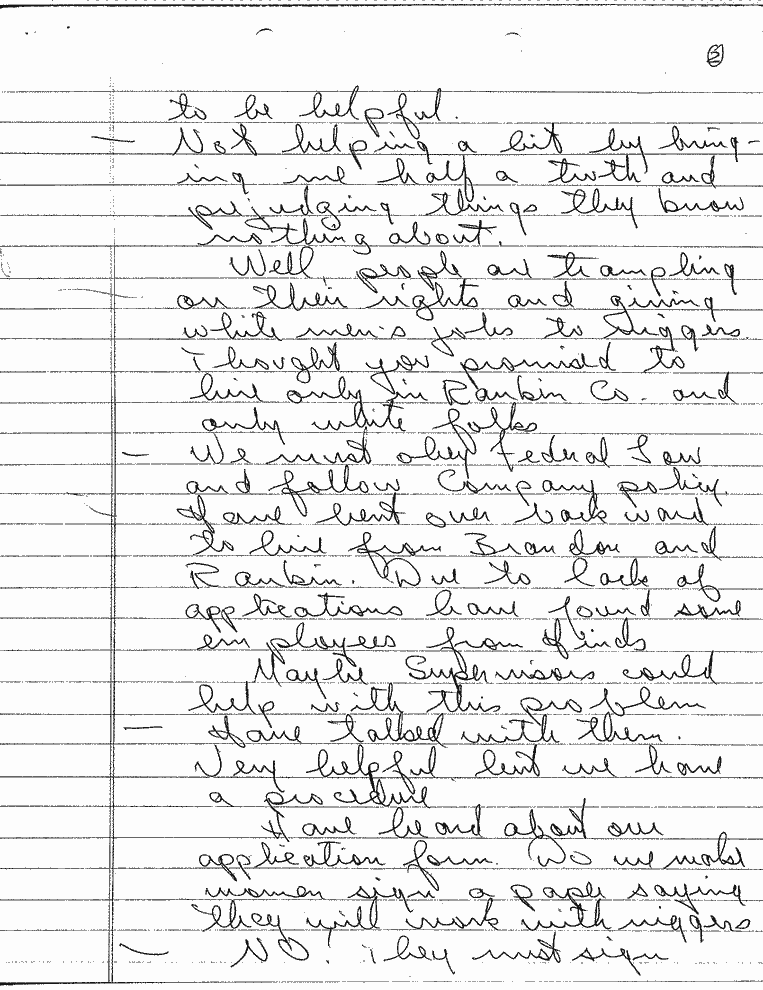 2
to be helpful.
— Not helping a bit by bring-
ing me half a truth and
prejudging things they know
nothing about.
Well, people are trampling
on their rights and giving
white men's jobs to niggers.
Thought you promised to
hire only in Rankin Co. and
only white folks
— We must obey Federal Law
and follow Company policy.
Have bent over backward
to hire from Brandon and
Rankin. Due to lack of
applications have found some
employees from Hinds
Maybe Supervisors could
help with this problem
— Have talked with them.
Very helpful but we have
a procedure
Have heard about our
application form. Do we make
women sign a paper saying
they will work with niggers
— NO! They must sign